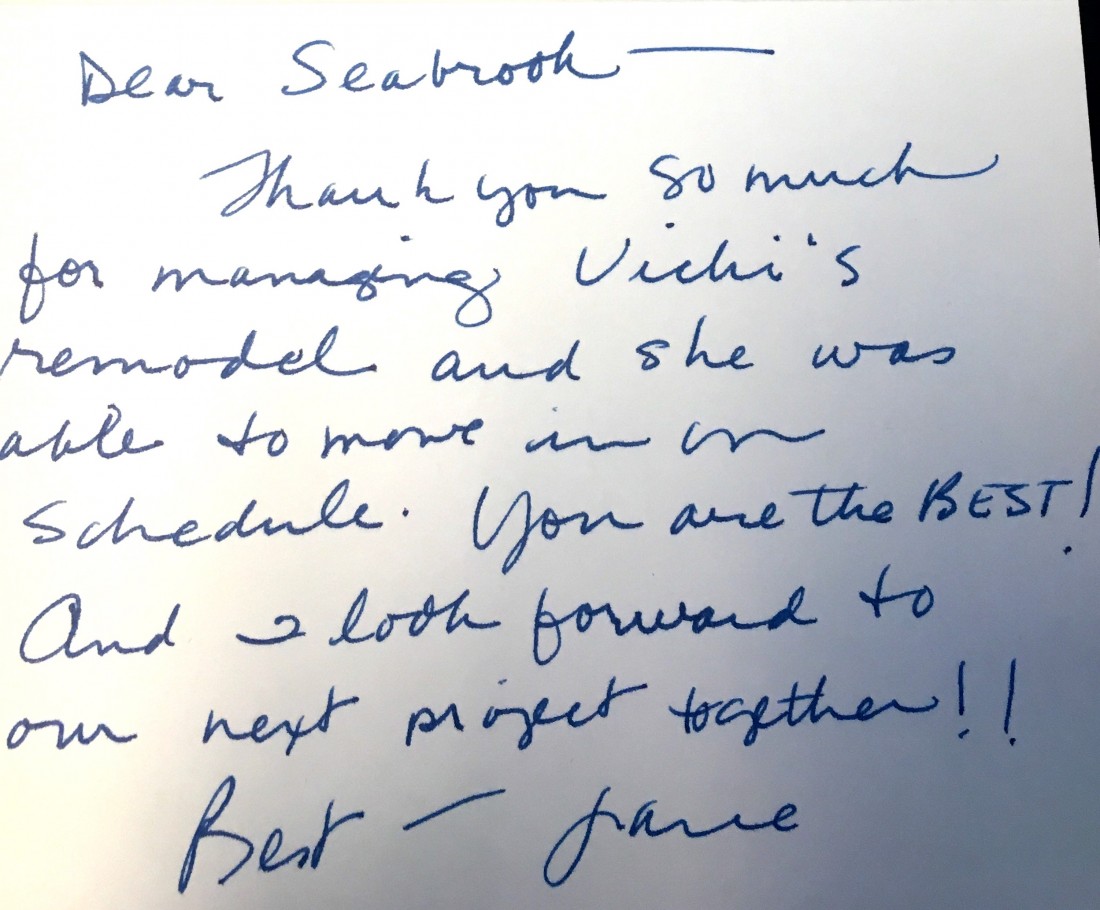 Dear Seabrook —
Thank you so much
for managing Vicki's
remodel and she was
able to move in on
Schedule. You are the BEST!
And I look forward to
our next project together!!
Best — Jane